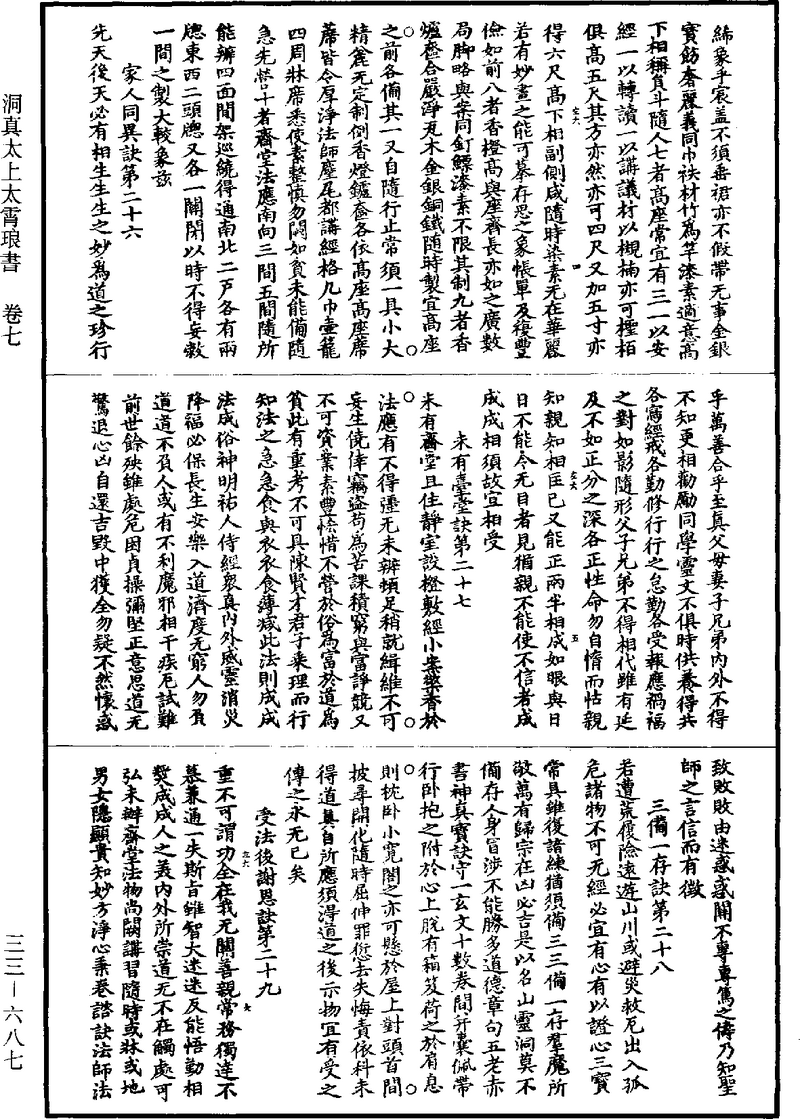 綿象乎宸蓋不須垂裙亦不假帶无事金銀
寶飾奢麗義同巾袟材竹為竿漆素適意高
下相稱負斗隨人七者高座常宜有三一以安
經一以轉讀一以講議材以槻楠亦可檉栢
俱高五尺其方亦然亦可四尺又加五寸亦
得六尺高下相副側咸隨時染素无在華麗
若有妙畫之能可摹存思之象帳單及複豐
儉如前八者香橙高與座齊長亦如之廣數
局脚略與案同釘鏢漆素不限其制九者香
爐奩合嚴淨瓦木金銀銅鐵隨時製宜高座
之前各備其一又自隨行止常須一具小大
精麄无定制倒香燈鑪奩各依高座高座蓆
蓆皆令厚淨法師麈尾都講經格几巾壺籠
四周牀席悉使素整慎勿闕如貧未能備隨
急先營十者齋堂法應南向三間五間隨所
能辦四面閒架巡繞得通南北二戶各有兩
牕東西二頭牕又各一關閉以時不得妄敷
一間之製大較象茲
家人同異訣第二十六
先天後天必有相生生生之妙為道之珍行
乎萬善合乎至真父母妻子兄弟內外不得
不知更相勸勵同學靈文不俱時供養得共
各寫經戒各勤修行行之怠勤各受報應禍福
之對如影隨形父子兄弟不得相代雖有延
及不如正分之深各正性命勿自惰而怙親
知親知相匡已又能正兩半相成如眼與日
日不能令无目者見猶親不能使不信者成
成成相須故宜相受
未有臺堂訣第二十七
未有齋堂且住靜室設橙敷經小案藥香於
法應有不得彊无未辦頓足稍就緝維不可
妄生僥倖竊盜苟為苦課積窮與富諍競又
不可資業素豐恡惜不營於俗為富於道為
貧此有重考不可具陳賢才君子乘理而行
知法之急急食與衣衣食薄減此法則成成
法成俗神明祐人侍經衆真內外感靈消災
降福必保長生安樂入道濟度无窮人勿負
道道不負人或有不利魔邪相干疾厄試難
前世餘殃雖處危困貞操彌堅正意思道无
驚追心凶自還吉毀中獲全勿疑不然懷惑
致敗敗由迷惑惑開不專專篤之儔乃知聖
師之言信而有徵
三備一存訣第二十八
若遭荒履險遠遊山川或避災救厄出入孤
危諸物不可无經必宜有心有以證心三寶
常具雖復諸練猶須備三三備一存羣魔所
敬萬有歸宗在凶必吉是以名山靈洞莫不
備存人身冒涉不能勝多道德章句五老赤
書神真寶訣守一玄文十數卷間并囊佩帶
行卧抱之附於心上脫有箱笈荷之於肩息
則枕卧小寬閤之亦可懸於屋上對頭首間
披尋開化隨時屈伸罪愆去失悔責依科未
得道真自所應須得道之後示物宜有受之
傳之永无已矣
受法後謝恩訣第二十九
重不可謂功全在我无關善親常務獨達不
慕兼通一失斯旨雖智大迷迷反能悟勤相
獎成成人之美內外所崇道无不在觸處可
弘未辦齋堂法物尚闕講習隨時或牀或地
男女隱顯貴知妙方淨心秉卷諮訣法師法
洞真太上太霄琅書 卷七
三三—六八七